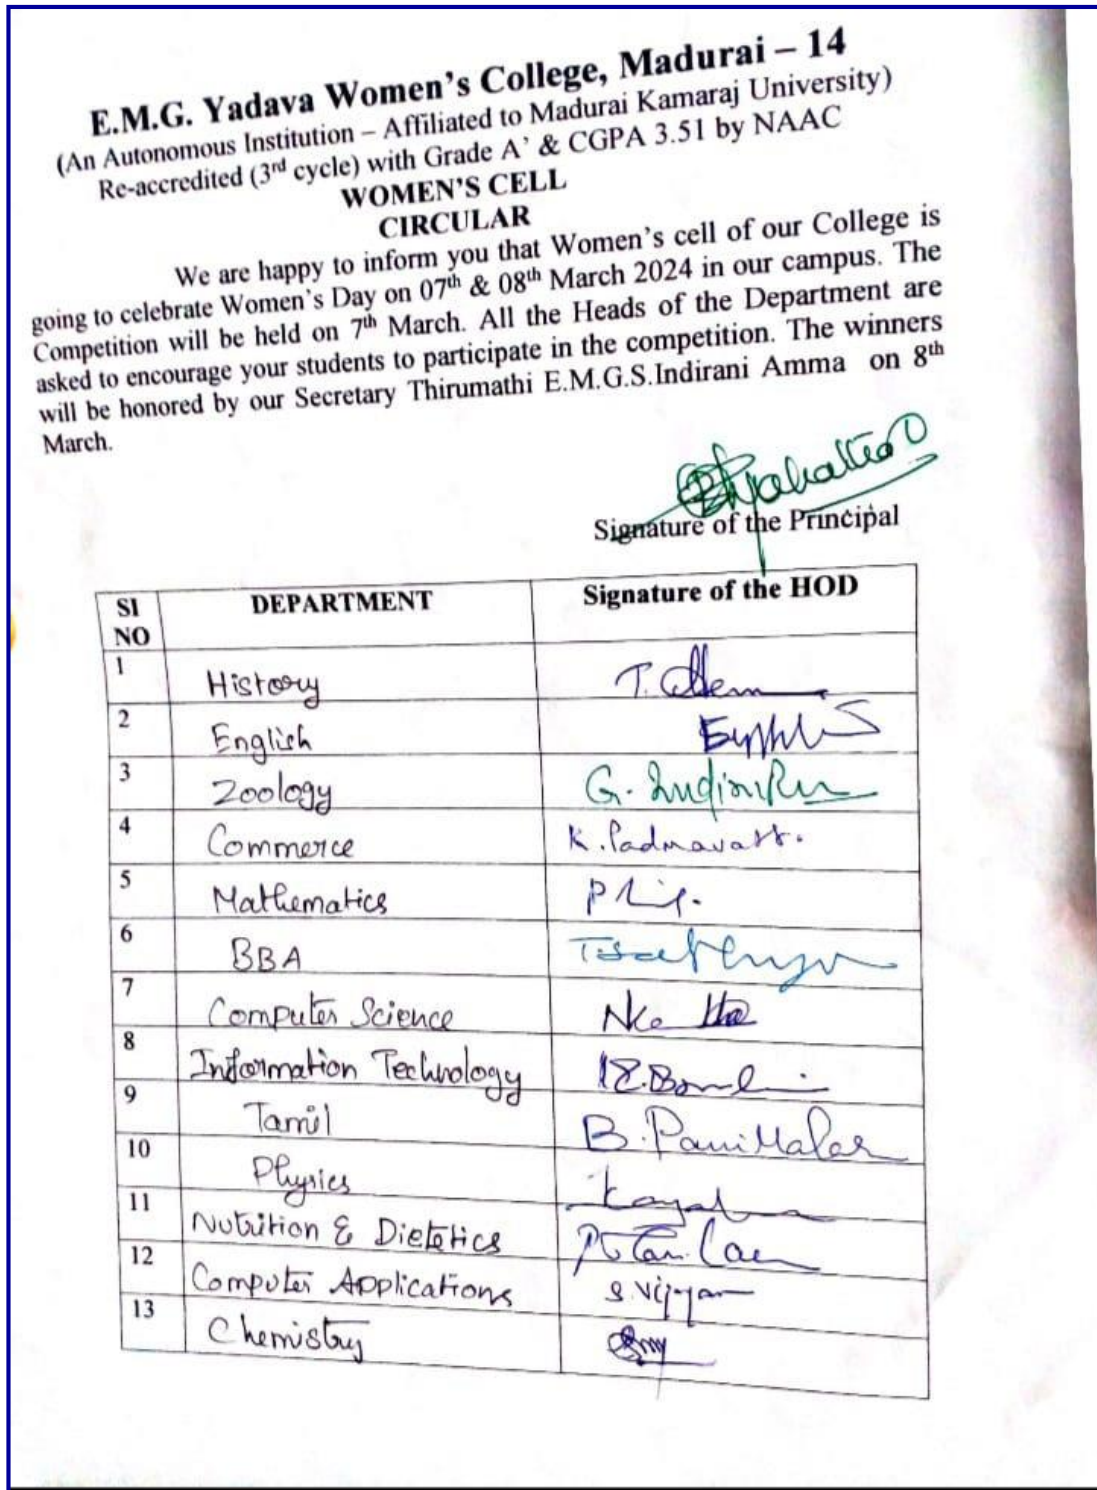 E.M.G. Yadava Women's College, Madurai – 14
(An Autonomous Institution – Affiliated to Madurai Kamaraj University)
Re-accredited (3rd cycle) with Grade A' & CGPA 3.51 by NAAC
WOMEN'S CELL
CIRCULAR
We are happy to inform you that Women's cell of our College is
going to celebrate Women's Day on 07th & 08th March 2024 in our campus. The
Competition will be held on 7th March. All the Heads of the Department are
asked to encourage your students to participate in the competition. The winners
will be honored by our Secretary Thirumathi E.M.G.S.Indirani Amma on 8th
March.
Signature of the Principal
SI NO DEPARTMENT Signature of the HOD
1 History
2 English
3 Zoology
4 Commerce
5 Mathematics
6 BBA
7 Computer Science
8 Information Technology
9 Tamil B. PaniMalar
10 Physics
11 Nutrition & Dietetics
12 Computer Applications
13 Chemistry